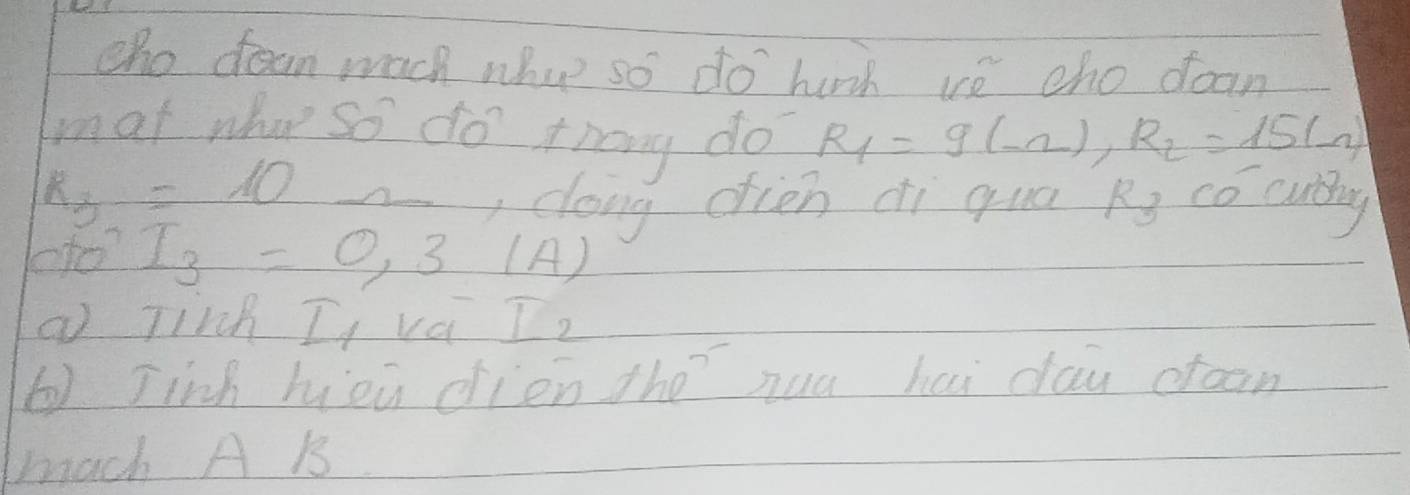 cho đoạn mạch như sơ đồ hình vẽ cho đoạn
mạt như sơ đồ trong đó R₁ = 9 (Ω), R₂ = 15 (Ω)
R₃ = 10 Ω, dòng điện đi qua R₃ có cường
độ I₃ = 0,3 (A)
a) Tính I₁ và I₂
b) Tính hiệu điện thế hai đầu đoạn
mạch A B